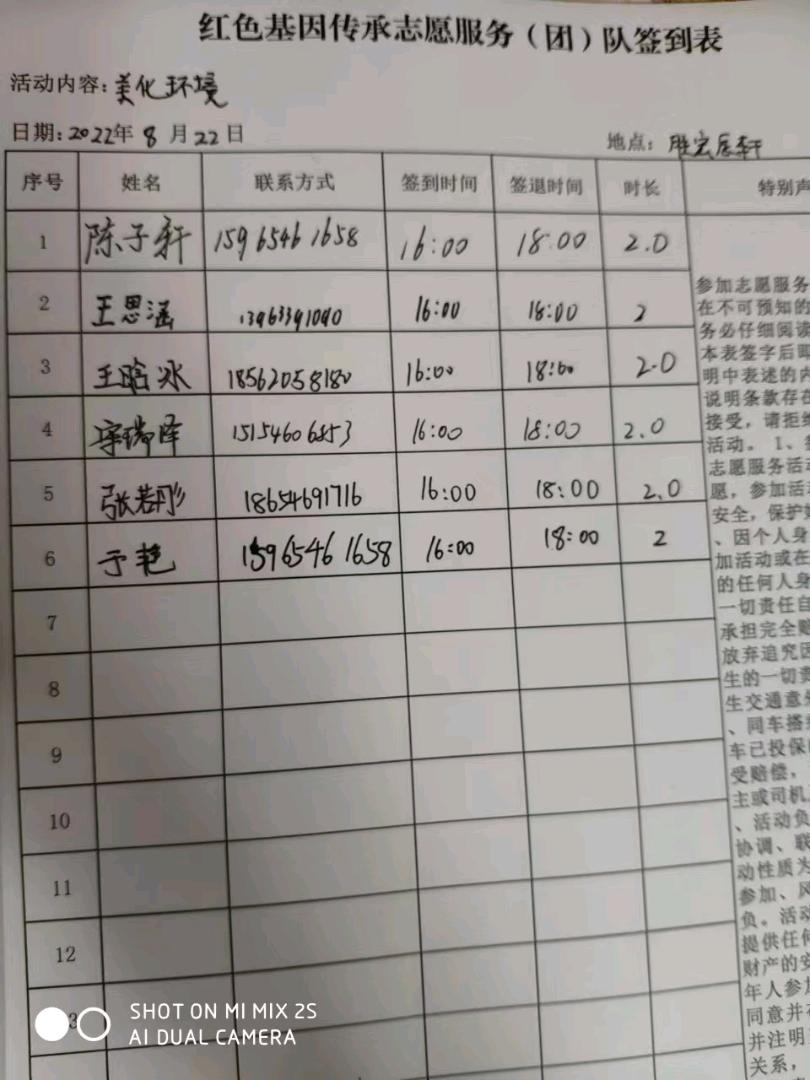 红色基因传承志愿服务（团）队签到表
活动内容：美化环境
日期：2022年8月22日
地点：胜宏辰轩
序号 姓名 联系方式 签到时间 签退时间 时长 特别声
1 陈子轩 15965461658 16:00 18:00 2.0
2 王思涵 13963391090 16:00 18:00 2
3 王晗冰 18562058180 16:00 18:00 2.0
4 瑞泽 15154606853 16:00 18:00 2.0
5 张若彤 18654691716 16:00 18:00 2.0
6 于艳 15965461658 16:00 18:00 2
7
8
9
10
11
12
3
参加志愿服务
在不可预知的
务必仔细阅读
本表签字后即
明中表述的内
说明条款存在
接受，请拒绝
活动。1、
志愿服务活动
愿，参加活
安全，保护
、因个人身
加活动或在
的任何人身
一切责任自
承担完全赔
放弃追究因
生的一切责
生交通意外
、同车搭
车已投保
受赔偿，
主或司机
、活动负
协调、联
动性质为
参加、风
负。活动
提供任何
财产的安
年人参加
同意并
并注明
关系，
SHOT ON MI MIX 2S
AI DUAL CAMERA